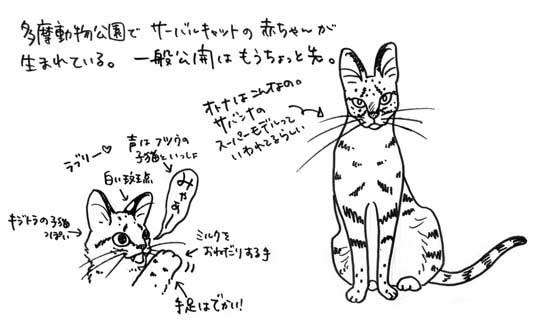 多摩動物公園で サーバルキャットの赤ちゃんが
生まれている。 一般公開はもうちょっと先。
オトナはこんなの。
サバンナの
スーパーモデルって
いわれてるらしい
ラブリー♡
声はフツウの
子猫といっしょ
白い斑点
みゃあ
キジトラの子猫
っぽい
ミルクを
おねだりする手
手足はでかい!